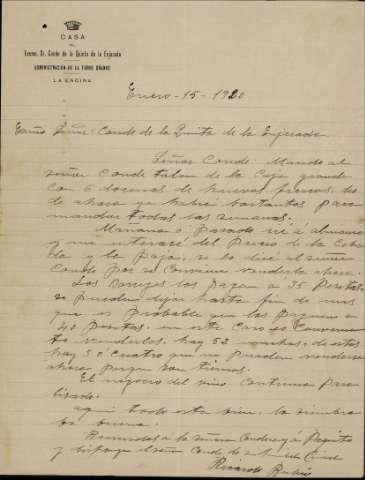 CASA
DEL
Excmo. Sr. Conde de la Quinta de la Enjarada
ADMINISTRACIÓN DE LA TORRE GRANDE
LA ENCINA
Enero-15-1920
Excmo Señor: Conde de la Quinta de la Enjarada
Señor Conde: Mando al
señor Conde talon de la Caja grande
con 6 docenas de huevos frescos, des
de ahora ya habrá bastantes para
mandar todas las semanas.
Mañana ó pasado iré á
y me enteraré del precio de la Ceba
da y la paja, se lo diré al señor
Conde por si conviene venderla ahora.
Los borregos los pagan a 35 pesetas,
se pueden dejar hasta fin de mes
que es probable que los paguen a
40 pesetas. en este caso es conveniente
venderlos, hay 52 machos, de estos
hay 3 ó cuatro que no pueden venderse
ahora porque son tiernos.
El negocio del vino continua para
lizado.
aqui todo esta bien, la siembra
bá buena.
Recuerdos a la señora Condesa y á Pepito
y disponga el señor Conde de
Ricardo Rubio